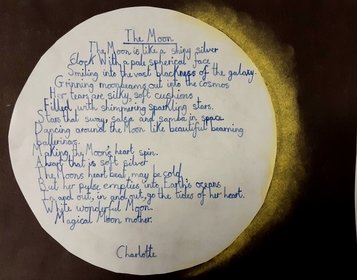 The Moon
The Moon is like a shiny silver
Clock With a pale spherical face
Smiling into the vast blackness of the galaxy.
Grinning moonbeams out into the cosmos
Her tears are silky, soft cushions
Filled with shimmering sparkling stars.
Stars that sway, salsa and samba in space
Dancing around the Moon like beautiful beaming
ballerinas.
Making the Moon's heart spin.
A heart that is soft silver
The Moons heart beat may be cold,
But her pulse empties into Earth's oceans
In and out, in and out, go the tides of her heart.
White wonderful Moon.
Magical Moon mother.
Charlotte